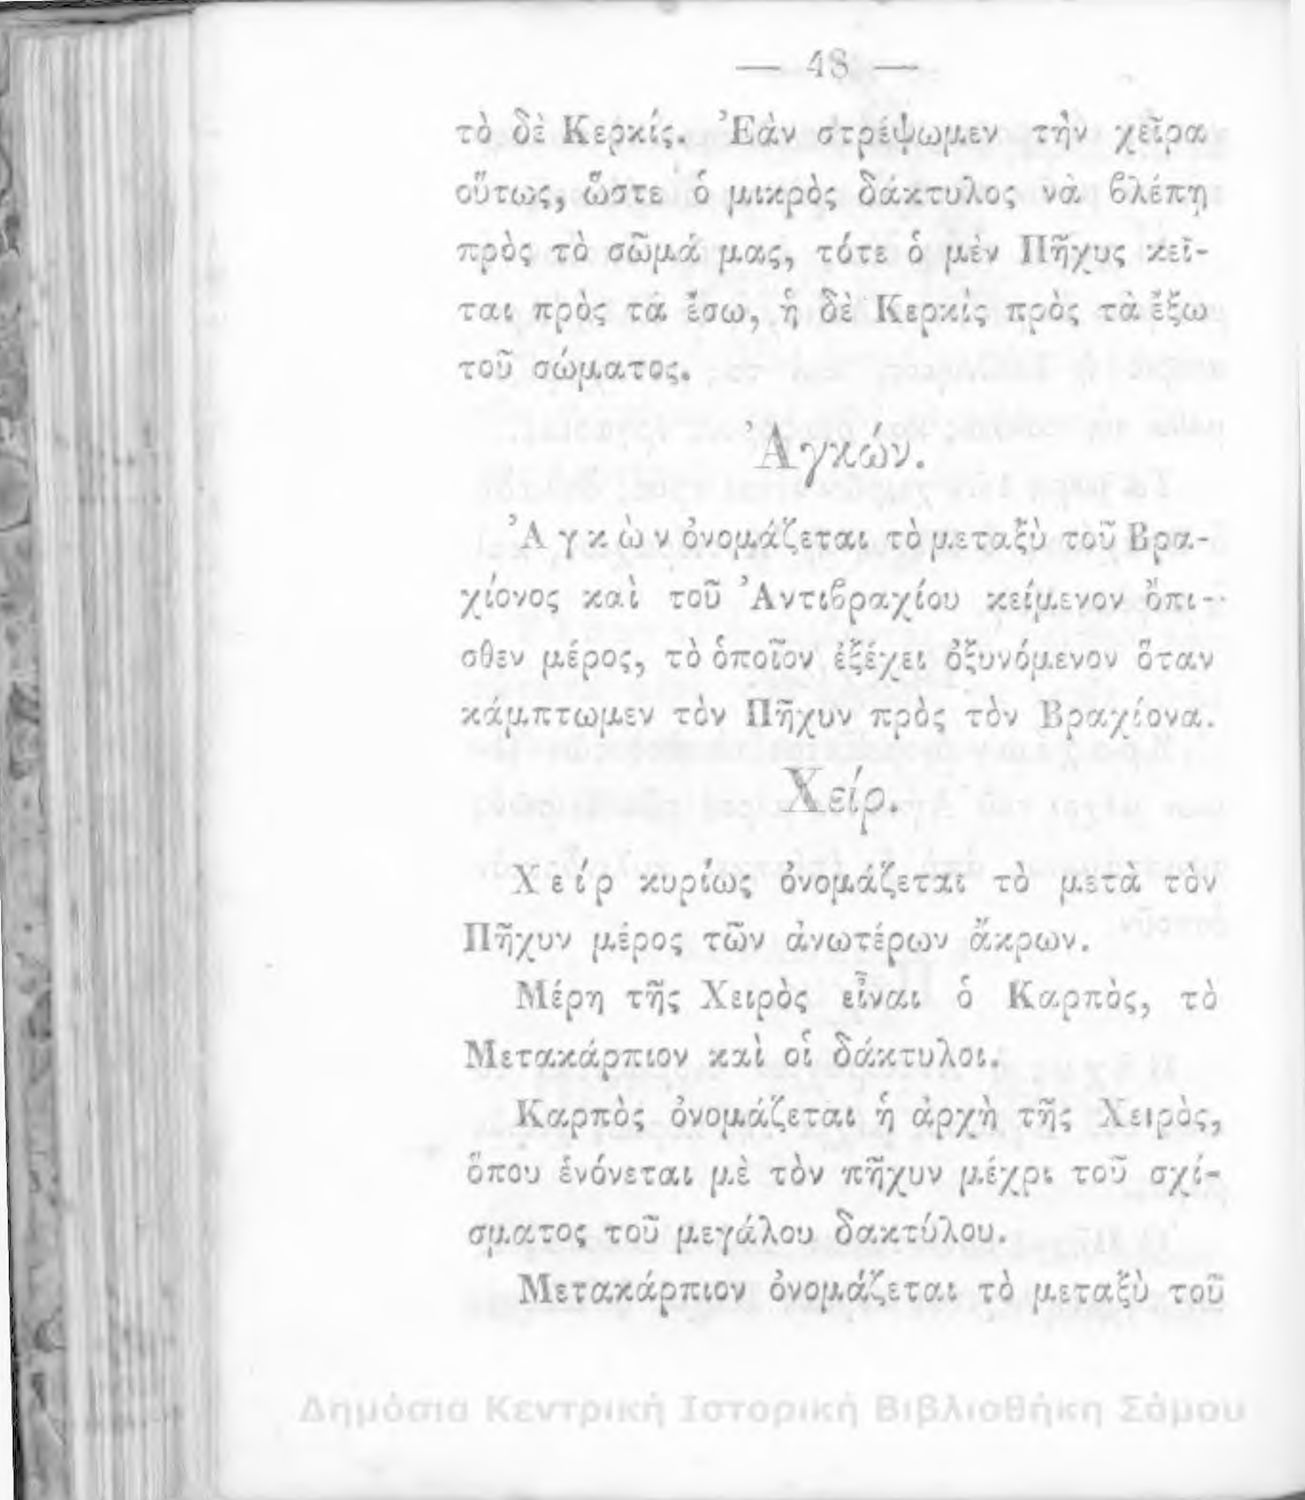 — 48 —
τὸ δὲ Κερκίς. Ἐὰν στρέψωμεν τὴν χεῖρα
οὕτως, ὥστε ὁ μικρὸς δάκτυλος νὰ βλέπῃ
πρὸς τὸ σῶμά μας, τότε ὁ μὲν Πῆχυς κεῖ-
ται πρὸς τὰ ἔσω, ἡ δὲ Κερκὶς πρὸς τὰ ἔξω
τοῦ σώματος.
Ἀγκών.
Ἀγκὼν ὀνομάζεται τὸ μεταξὺ τοῦ Βρα-
χίονος καὶ τοῦ Ἀντιβραχίου κείμενον ὄπι-
σθεν μέρος, τὸ ὁποῖον ἐξέχει ὀξυνόμενον ὅταν
κάμπτωμεν τὸν Πῆχυν πρὸς τὸν Βραχίονα.
Χείρ.
Χείρ κυρίως ὀνομάζεται τὸ μετὰ τὸν
Πῆχυν μέρος τῶν ἀνωτέρων ἄκρων.
Μέρη τῆς Χειρὸς εἶναι ὁ Καρπὸς, τὸ
Μετακάρπιον καὶ οἱ δάκτυλοι.
Καρπὸς ὀνομάζεται ἡ ἀρχὴ τῆς Χειρὸς,
ὅπου ἑνόνεται μὲ τὸν πῆχυν μέχρι τοῦ σχί-
σματος τοῦ μεγάλου δακτύλου.
Μετακάρπιον ὀνομάζεται τὸ μεταξὺ τοῦ
Δημόσια Κεντρική Ιστορική Βιβλιοθήκη Σάμου